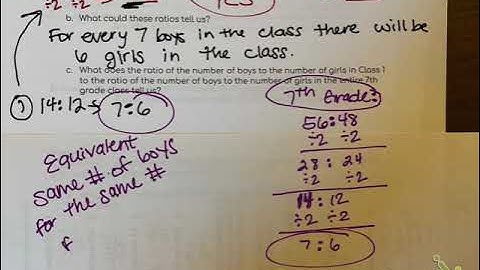 ÷2 ÷2
YES
b. What could these ratios tell us?
For every 7 boys in the class there will be
6 girls in the class.
c. What does the ratio of the number of boys to the number of girls in Class 1
to the ratio of the number of boys to the number of girls in the entire 7th
grade class tell us?
14:12 7:6
Equivalent
same # of boys
for the same #
7th Grade:
56:48
÷2 ÷2
28 : 24
÷2 ÷2
14 : 12
÷2 ÷2
7 : 6